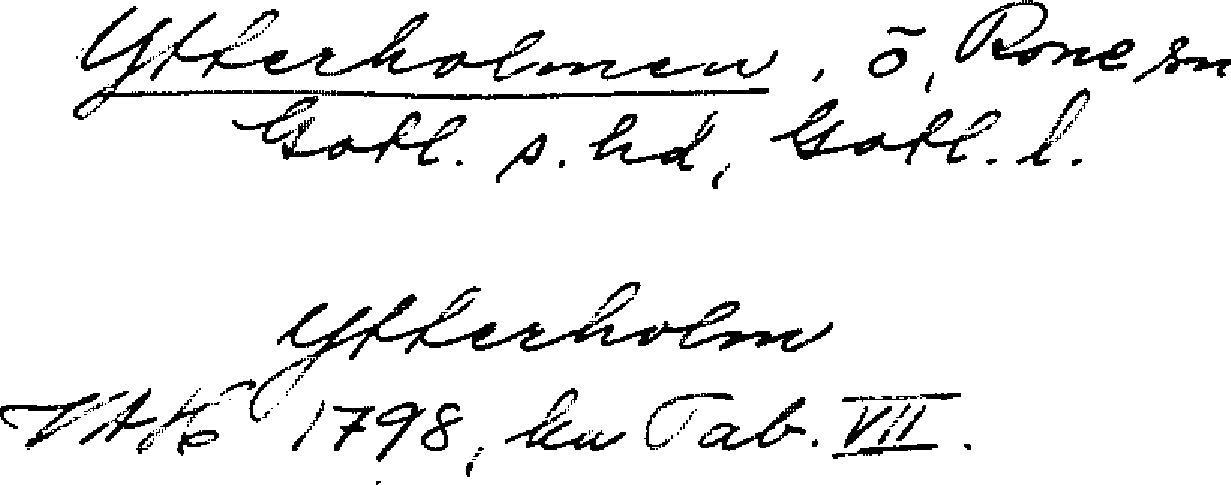 Ytterholmen, ö, Rone sn
Gotl. s. hd, Gotl. l.
Ytterholm
VAH 1798, ka Tab. VII.